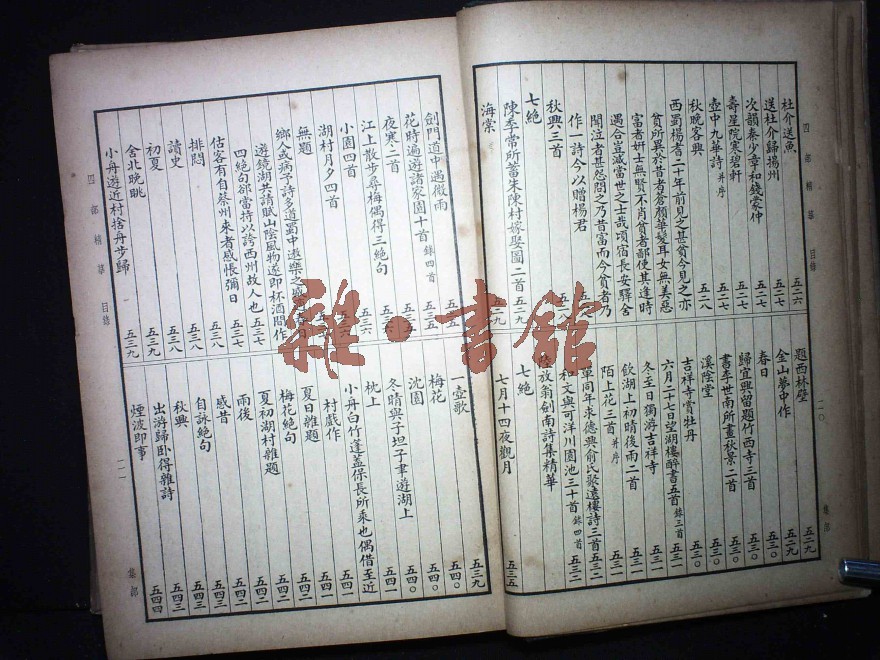 四部精華 目錄
杜介送魚 五二六
送杜介歸揚州 五二七
次韻秦少章和錢蒙仲 五二七
壽星院寒碧軒 五二七
壺中九華詩并序 五二七
秋晚客興 五二八
西蜀楊耆二十年前見之甚貧今見之亦
貧所異於昔者蒼顏華髮耳女無美惡
富者妍士無賢不肖貧者鄙使其逢時
遇合豈減當世之士哉頃宿長女驛舍
聞泣者甚怨問之乃昔富而今貧者乃
作一詩今以贈楊君
秋興三首
七絕
陳季常所蓄朱陳村嫁娶圖二首 五二九
海棠
題西林壁 五二九
金山夢中作 五二九
春日 五三〇
歸宜興留題竹西寺三首 五三〇
書李世南所畫秋景二首 五三〇
溪陰堂 五三〇
吉祥寺賞牡丹 五三〇
六月二十七日望湖樓醉書五首錄三首 五三一
冬至日獨游吉祥寺 五三一
飲湖上初晴後雨二首 五三一
陌上花三首并序 五三一
單同年求德興俞氏聚遠樓詩三首 五三二
和文與可洋川園池三十首錄四首 五三二
陸放翁劍南詩集精華
七絕
七月十四夜觀月 五三五
二〇
集部
劍門道中遇微雨 五三五
花時遍遊諸家園十首錄四首 五三五
夜寒二首 五三五
江上散步尋梅偶得三絕句 五三六
小園四首
湖村月夕四首
無題
鄉人或病予詩多道蜀中遨樂之盛
遊鏡湖共請賦山陰風物遂即杯酒間作
四絕句卻當持以誇西州故人也 五三七
估客有自蔡州來者感悵彌日 五三七
排悶 五三八
讀史 五三八
初夏 五三八
舍北晚眺 五三九
小舟遊近村捨舟步歸 五三九
四部精華 目錄
一壺歌 五三九
梅花 五四〇
沈園 五四〇
冬晴與子坦子聿遊湖上 五四一
枕上
小舟白竹蓬蓋保長所乘也偶借至近
村戲作 五四一
夏日雜題 五四一
梅花絕句 五四二
夏初湖村雜題 五四二
雨後 五四二
感昔 五四二
自詠絕句 五四三
秋興 五四三
出游歸臥得雜詩 五四三
煙波即事 五四四
二一
集部
雜·書館